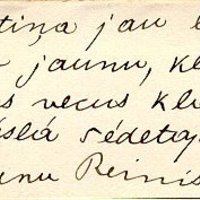 tiņa jau
jaunu, kl
s vecus klu
slā sēdetāj
unu Reinis